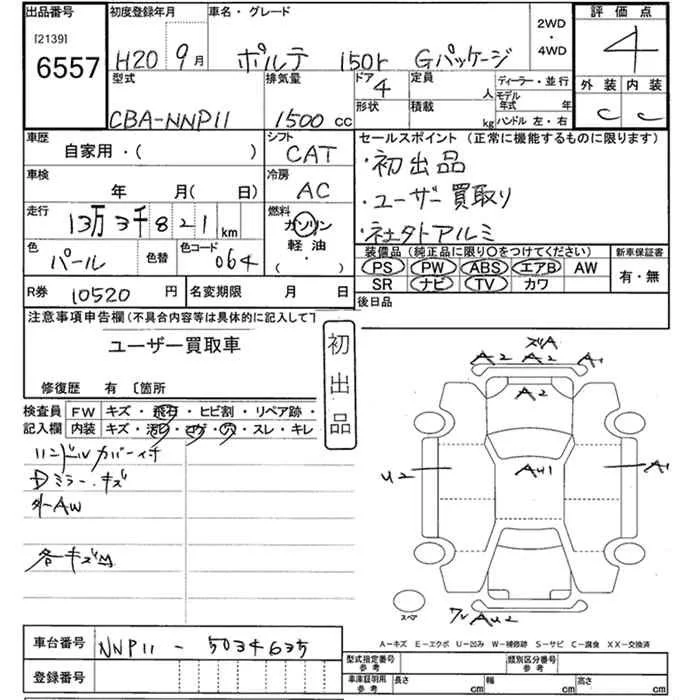 出品番号 初度登録年月 車名・グレード 評価点
[2139] 6557 H20 9月 ポルテ 150r Gパッケージ 2WD・4WD 4
型式 排気量 ドア 4 定員 人 ディーラー・並行 外装 内装
CBA-NNP11 1500 cc 形状 積載 kg モデル年式 年 ハンドル 左・右 C C
車歴 自家用・( ) シフト CAT セールスポイント (正常に機能するものに限ります)
・初出品
車検 年 月(日) 冷房 AC
・ユーザー買取り
走行 13万3千821km 燃料 ガソリン 軽油 ・( )
・社外アルミ
色 パール 色替 色コード 064
装備品(純正品に限り○をつけてください) 新車保証書
PS PW ABS エアB AW 有・無
SR ナビ TV カワ
R券 10520 円 名変期限 月 日 後日品
注意事項申告欄(不具合内容等は具体的に記入して下
ユーザー買取車
初出品
修復歴 有 〔箇所
検査員記入欄 FW キズ・飛石・ヒビ割・リペア跡・
内装 キズ・汚レ・コゲ・穴・スレ・キレ
ハンドルカバーイチ
Dミラー・キズ
外AW
各キズM
ズリA
A2 A2 A1
A2
U2 AU1 A1
AU2
スペア
A-キズ E-エクボ U-凹み W-補修跡 S-サビ C-腐食 XX-交換済
車台番号 NNP11-5034635
型式指定番号 参考 類別区分番号 参考
登録番号
車庫証明用 参考 長さ cm 幅 cm 高さ cm